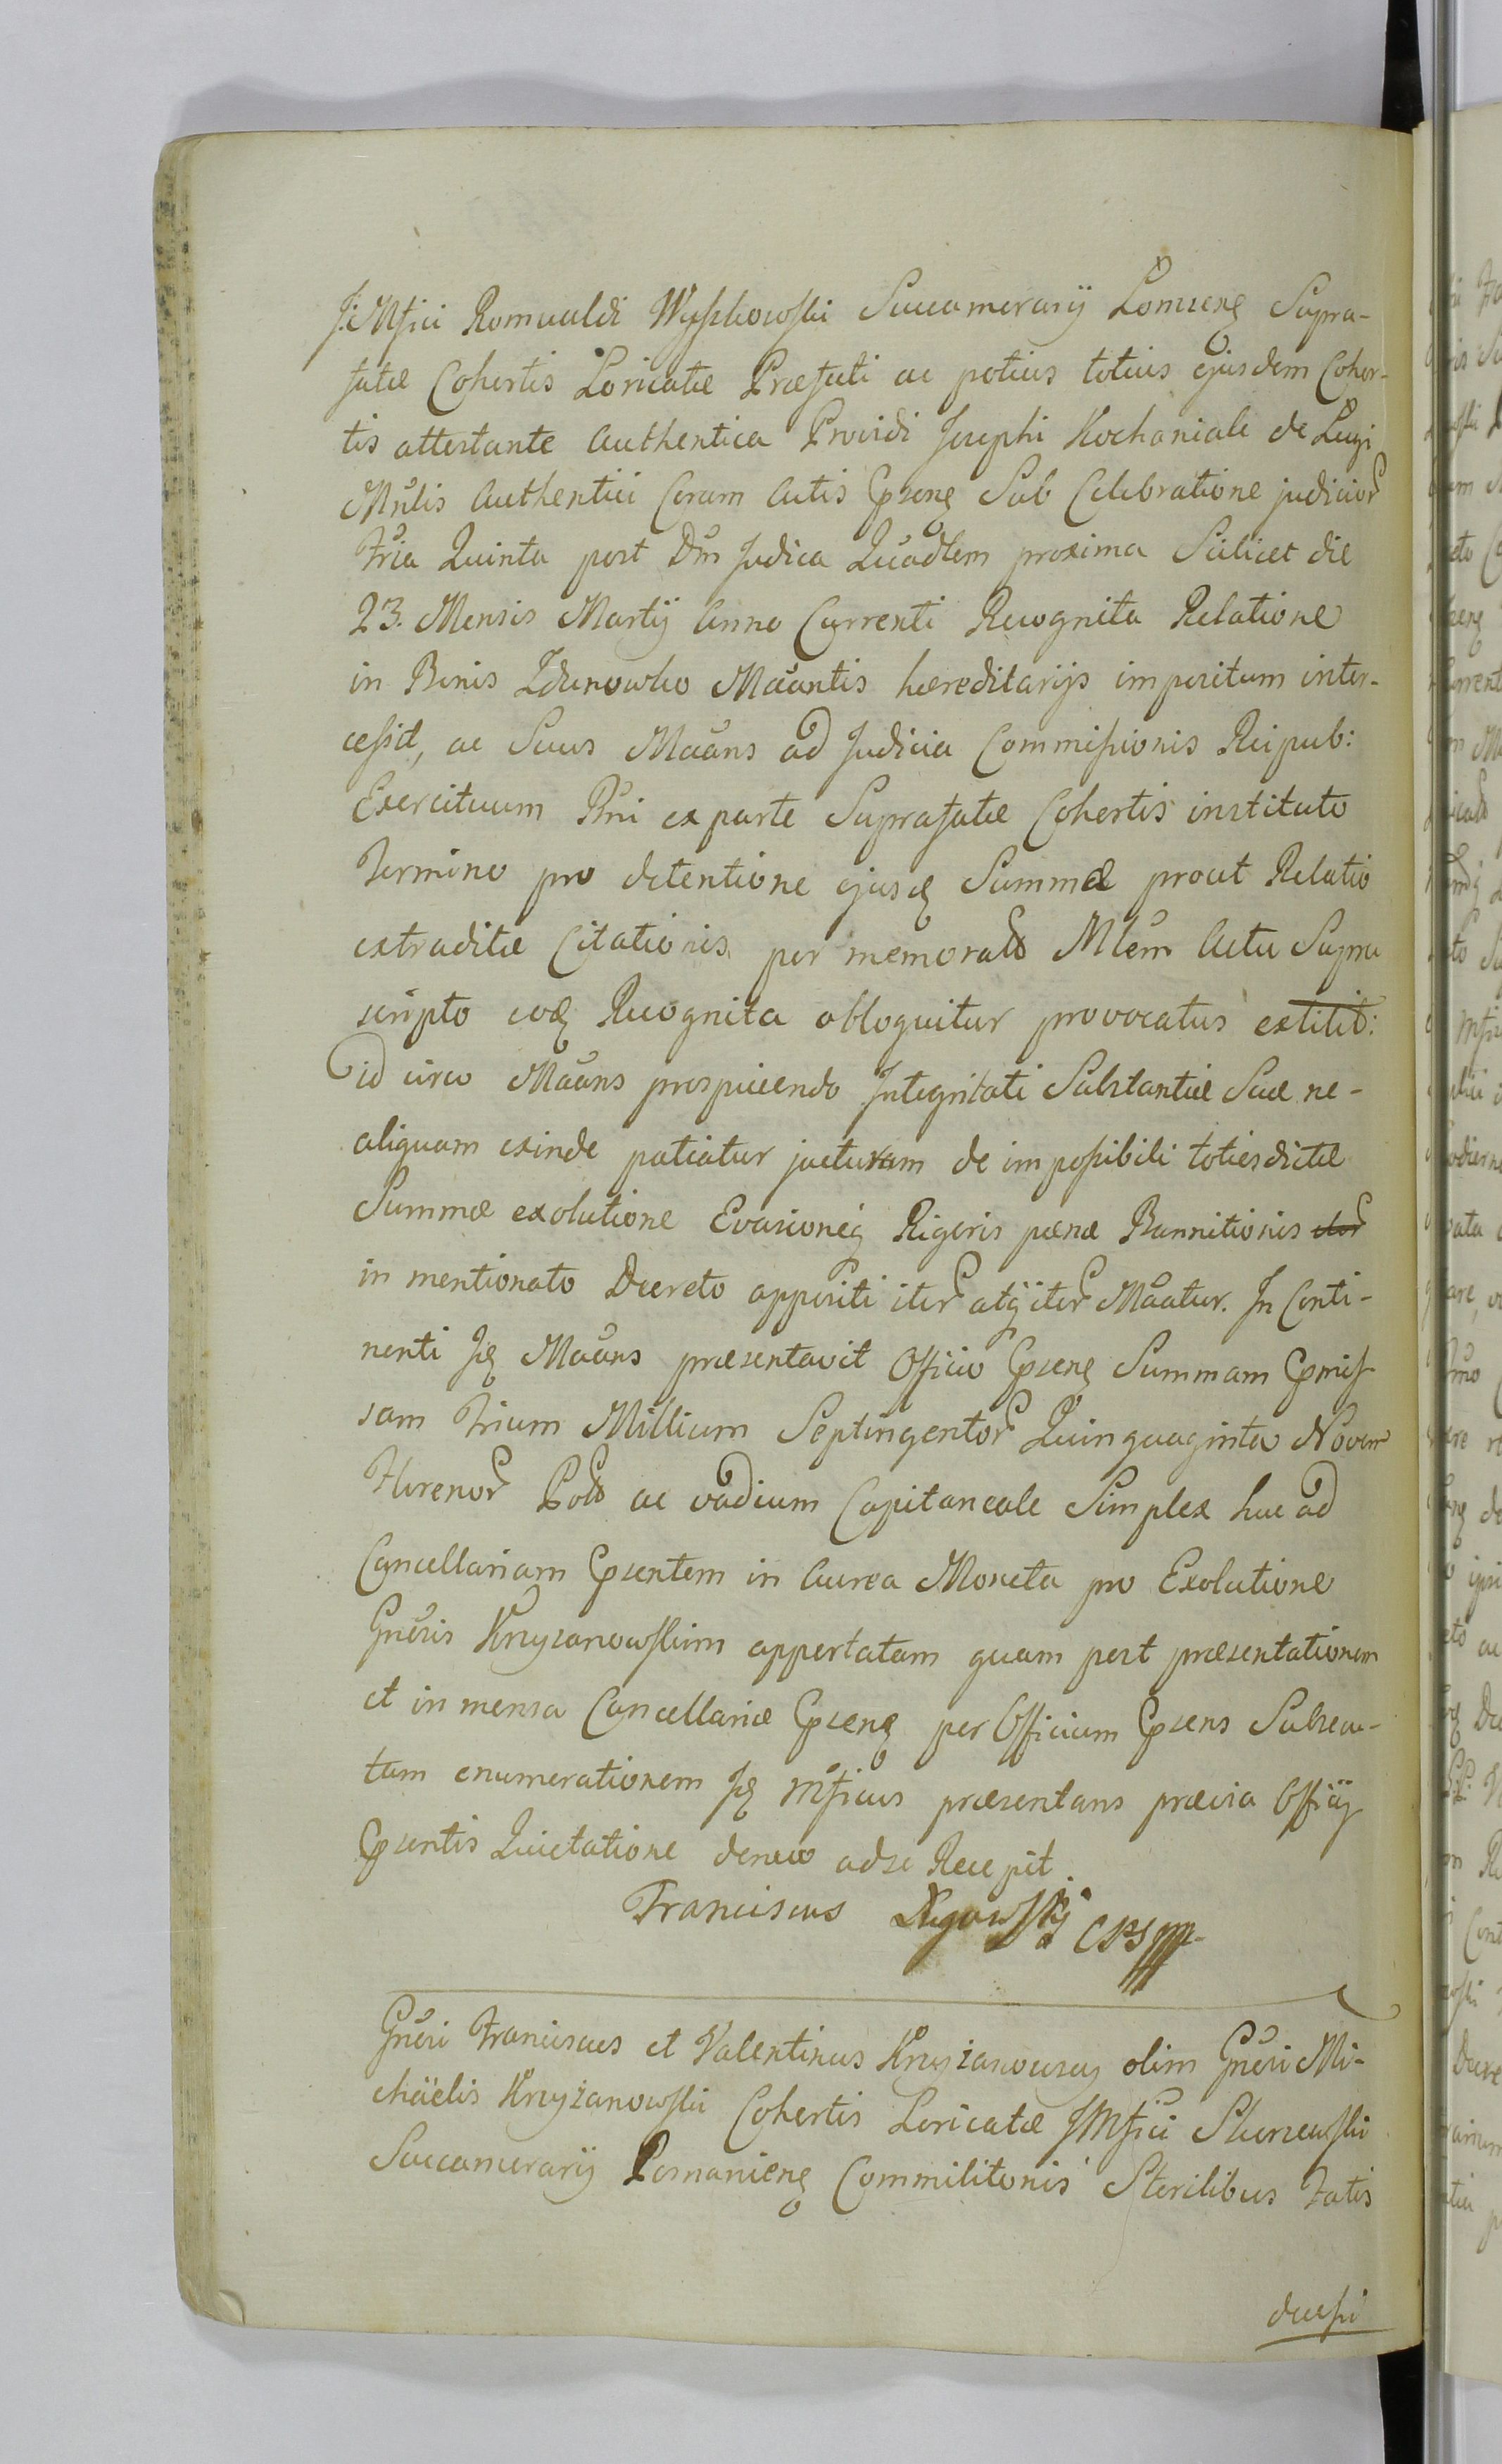 J: Mfici Romualdi Wyszkowski Succamerarij Lomzens Supra-
fatæ Cohortis Loricatæ Præfati ac potius totius ejusdem Cohor-
tis attestante authentica Providi Josephi Kochaniak de Lugi
Mnlis Authentici Coram Actis Cpsens Sub Celebratione judicior
Fria Quinta post Dm Judica Quadlem proxima Scilicet die
23. Mensis Martij Anno Currenti Recognita Relatione
in Bonis Zdunowko Maantis hæreditarijs impositum inter-
cessit, ac Suus Maans ad Judicia Commissionis Reipub:
Exercituum Rni ex parte Suprafatæ Cohortis instituto
Termino pro detentione ejusd Summæ prout Relatio
extraditæ Citationis per memorato Mlem Actu Supra
scripto eod Recognita obloquitur provocatus extitit:
id circo Maans prospiciendo Integritati Substantiæ Suæ ne-
aliquam exinde patiatur jacturam de impossibili totiesdictæ
Summæ exolutione Evasioneq Rigoris pænæ Bannitionis
in mentionato Decreto appositi iter atq iter Maatur. In Conti-
nenti Id Maans præsentavit Officio Cpsens Summam Cpmis-
sam Trium Millium Septingentor Quinquaginta Novem
Florenor Polo ac vadium Capitaneale Simplex huc ad
Cancellariam Cpsentem in Aurea Moneta pro Exolutione
Gneris Krzyzanowskim apportatam quam post præsentationem
et in mensa Cancellariæ Cpsens per Officium Cpsens Subsecu-
tam enumerationem Id Mficus præsentans prævia Officij
Cpsentis Quietatione denuo ad se Recepit.
Franciscus CPSmp
Gnesi Franciscus et Valentinus Krzyżanowscy olim Gnesi Mi-
chaëlis Krzyżanowski Cohortis Loricatæ JMfici Skorzewski
Succamerarij Posnaniens Commilitonis Sterilibus Fatis
decessi